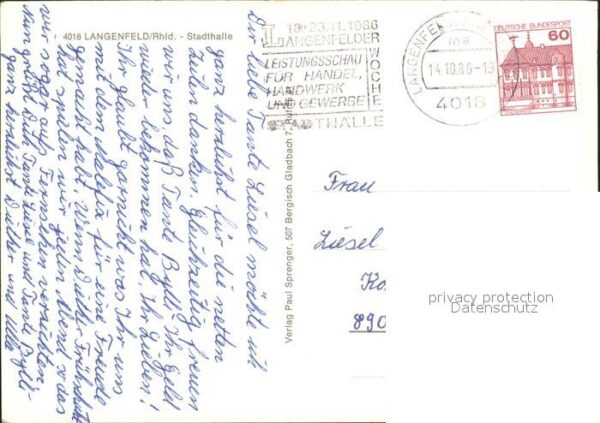 4018 LANGENFELD/Rhld. - Stadthalle
19.-23.11.1986
LANGENFELDER
WOCHE
LEISTUNGSSCHAU
FÜR HANDEL,
HANDWERK
UND GEWERBE
STADTHALLE
LANGENFELD
ma
14.10.86-13
4018
DEUTSCHE BUNDESPOST
60
Verlag Paul Sprenger, 507 Bergisch Gladbach
Dir liebe Tante Liesel möchte ich
ganz herzlich für die netten
Zeilen danken. Gleichzeitig freuen
wir uns, daß Tante Bylli Ihr Geld
wieder bekommen hat. Ihr Lieben!
Ihr glaubt garnicht was Ihr uns
mit dem für eine Freude
gemacht habt. Wenn Frühschicht
hat spielen wir jeden Abend so das
wir sogar aufs Fernsehen verzichten.
Tante Liesel und Tante Bylli
ganz herzlichst und Ulla
Frau
Liesel
Ko
890
privacy protection
Datenschutz